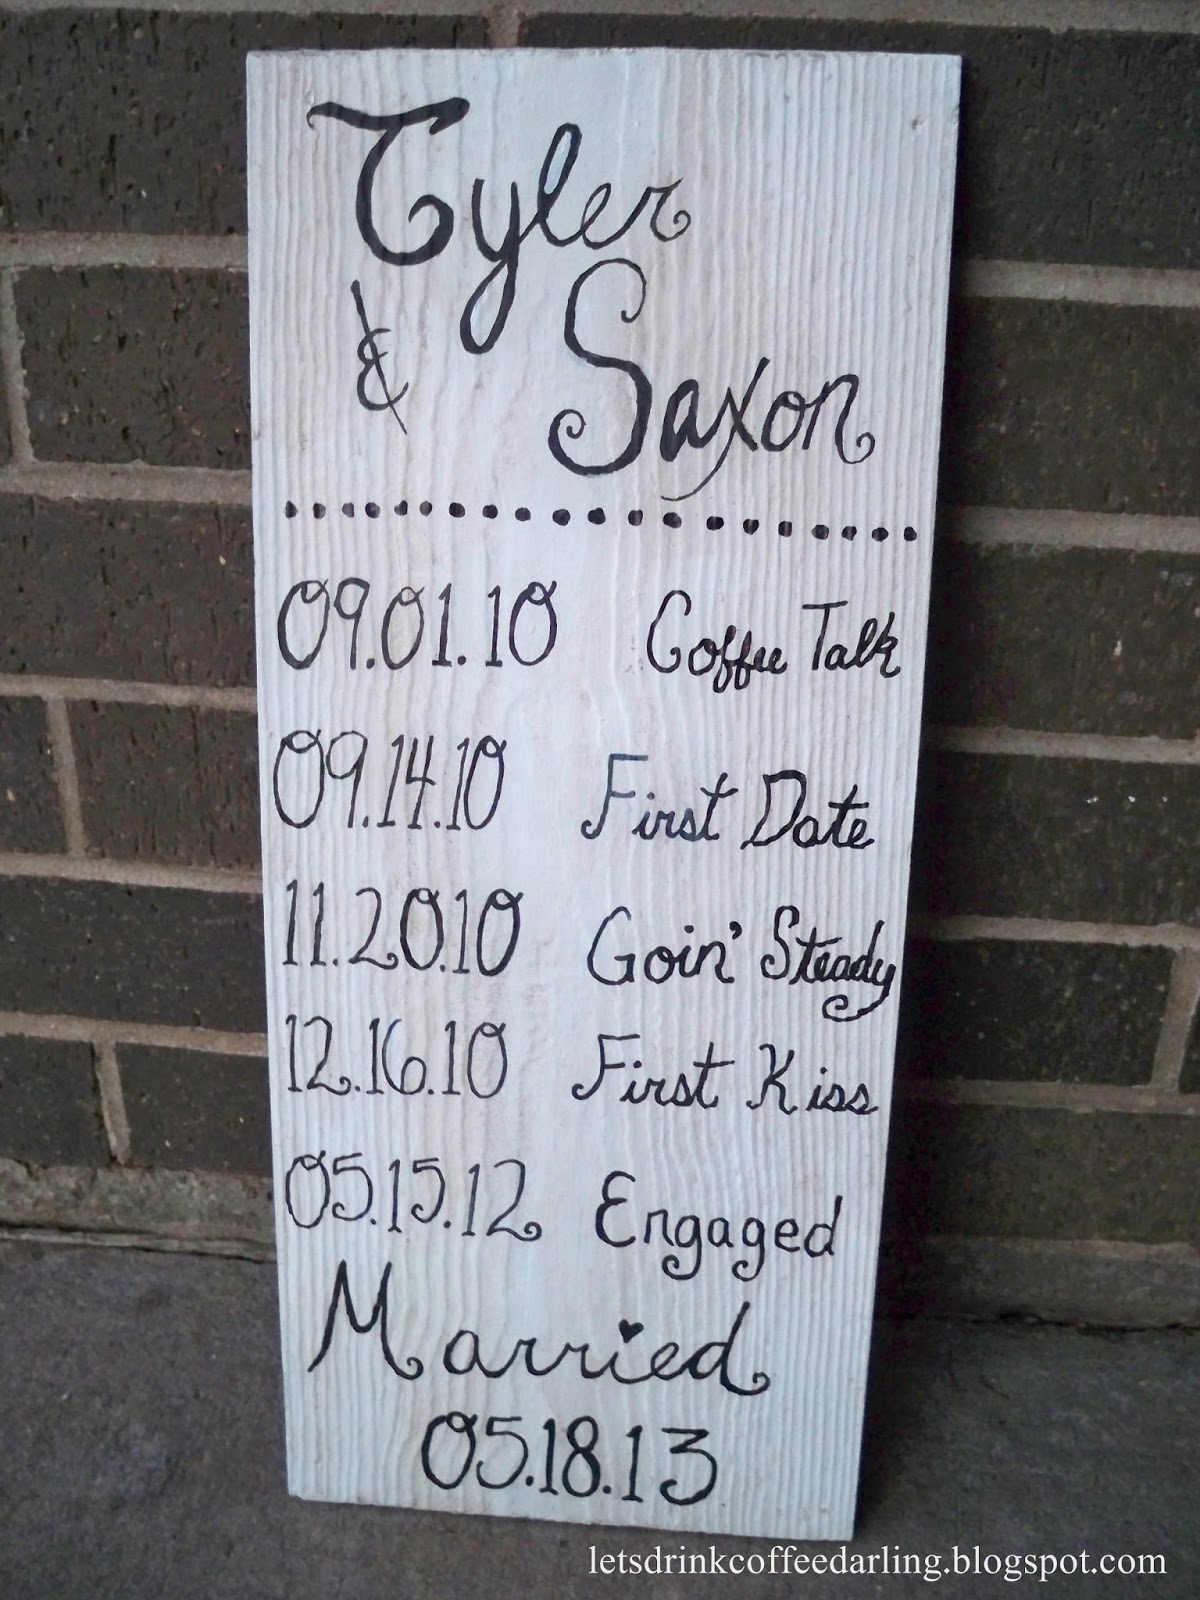 Tyler
& Saxon
09.01.10 Coffee Talk
09.14.10 First Date
11.20.10 Goin' Steady
12.16.10 First Kiss
05.15.12 Engaged
Married
05.18.13
letsdrinkcoffeedarling.blogspot.com